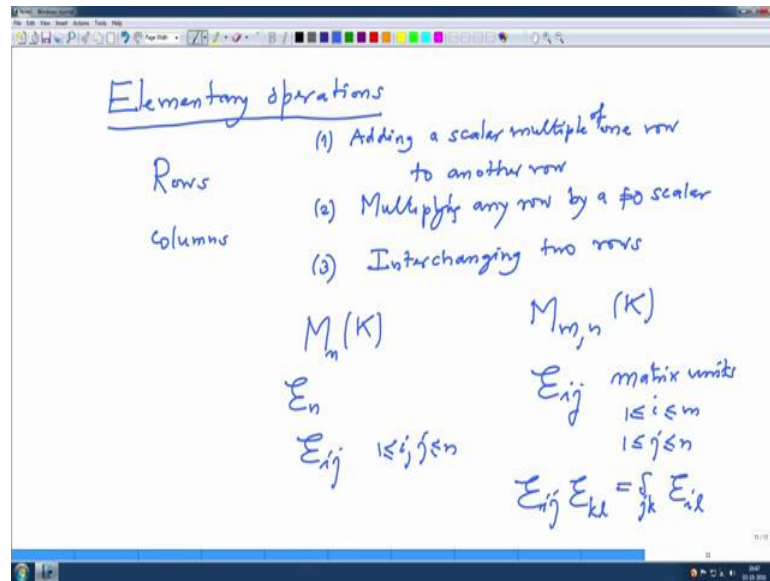 Note1 - Windows Journal
File Edit View Insert Actions Tools Help
Page Width
Elementary operations
Rows
columns
(1) Adding a scalar multiple of one row
to another row
(2) Multiplying any row by a ≠0 scalar
(3) Interchanging two rows
M_n(K)
M_{m,n}(K)
ℰ_n
ℰ_{ij} matrix units
1≤i≤m
1≤j≤n
ℰ_{ij} 1≤i,j≤n
ℰ_{ij} ℰ_{kl} = δ_{jk} ℰ_{il}